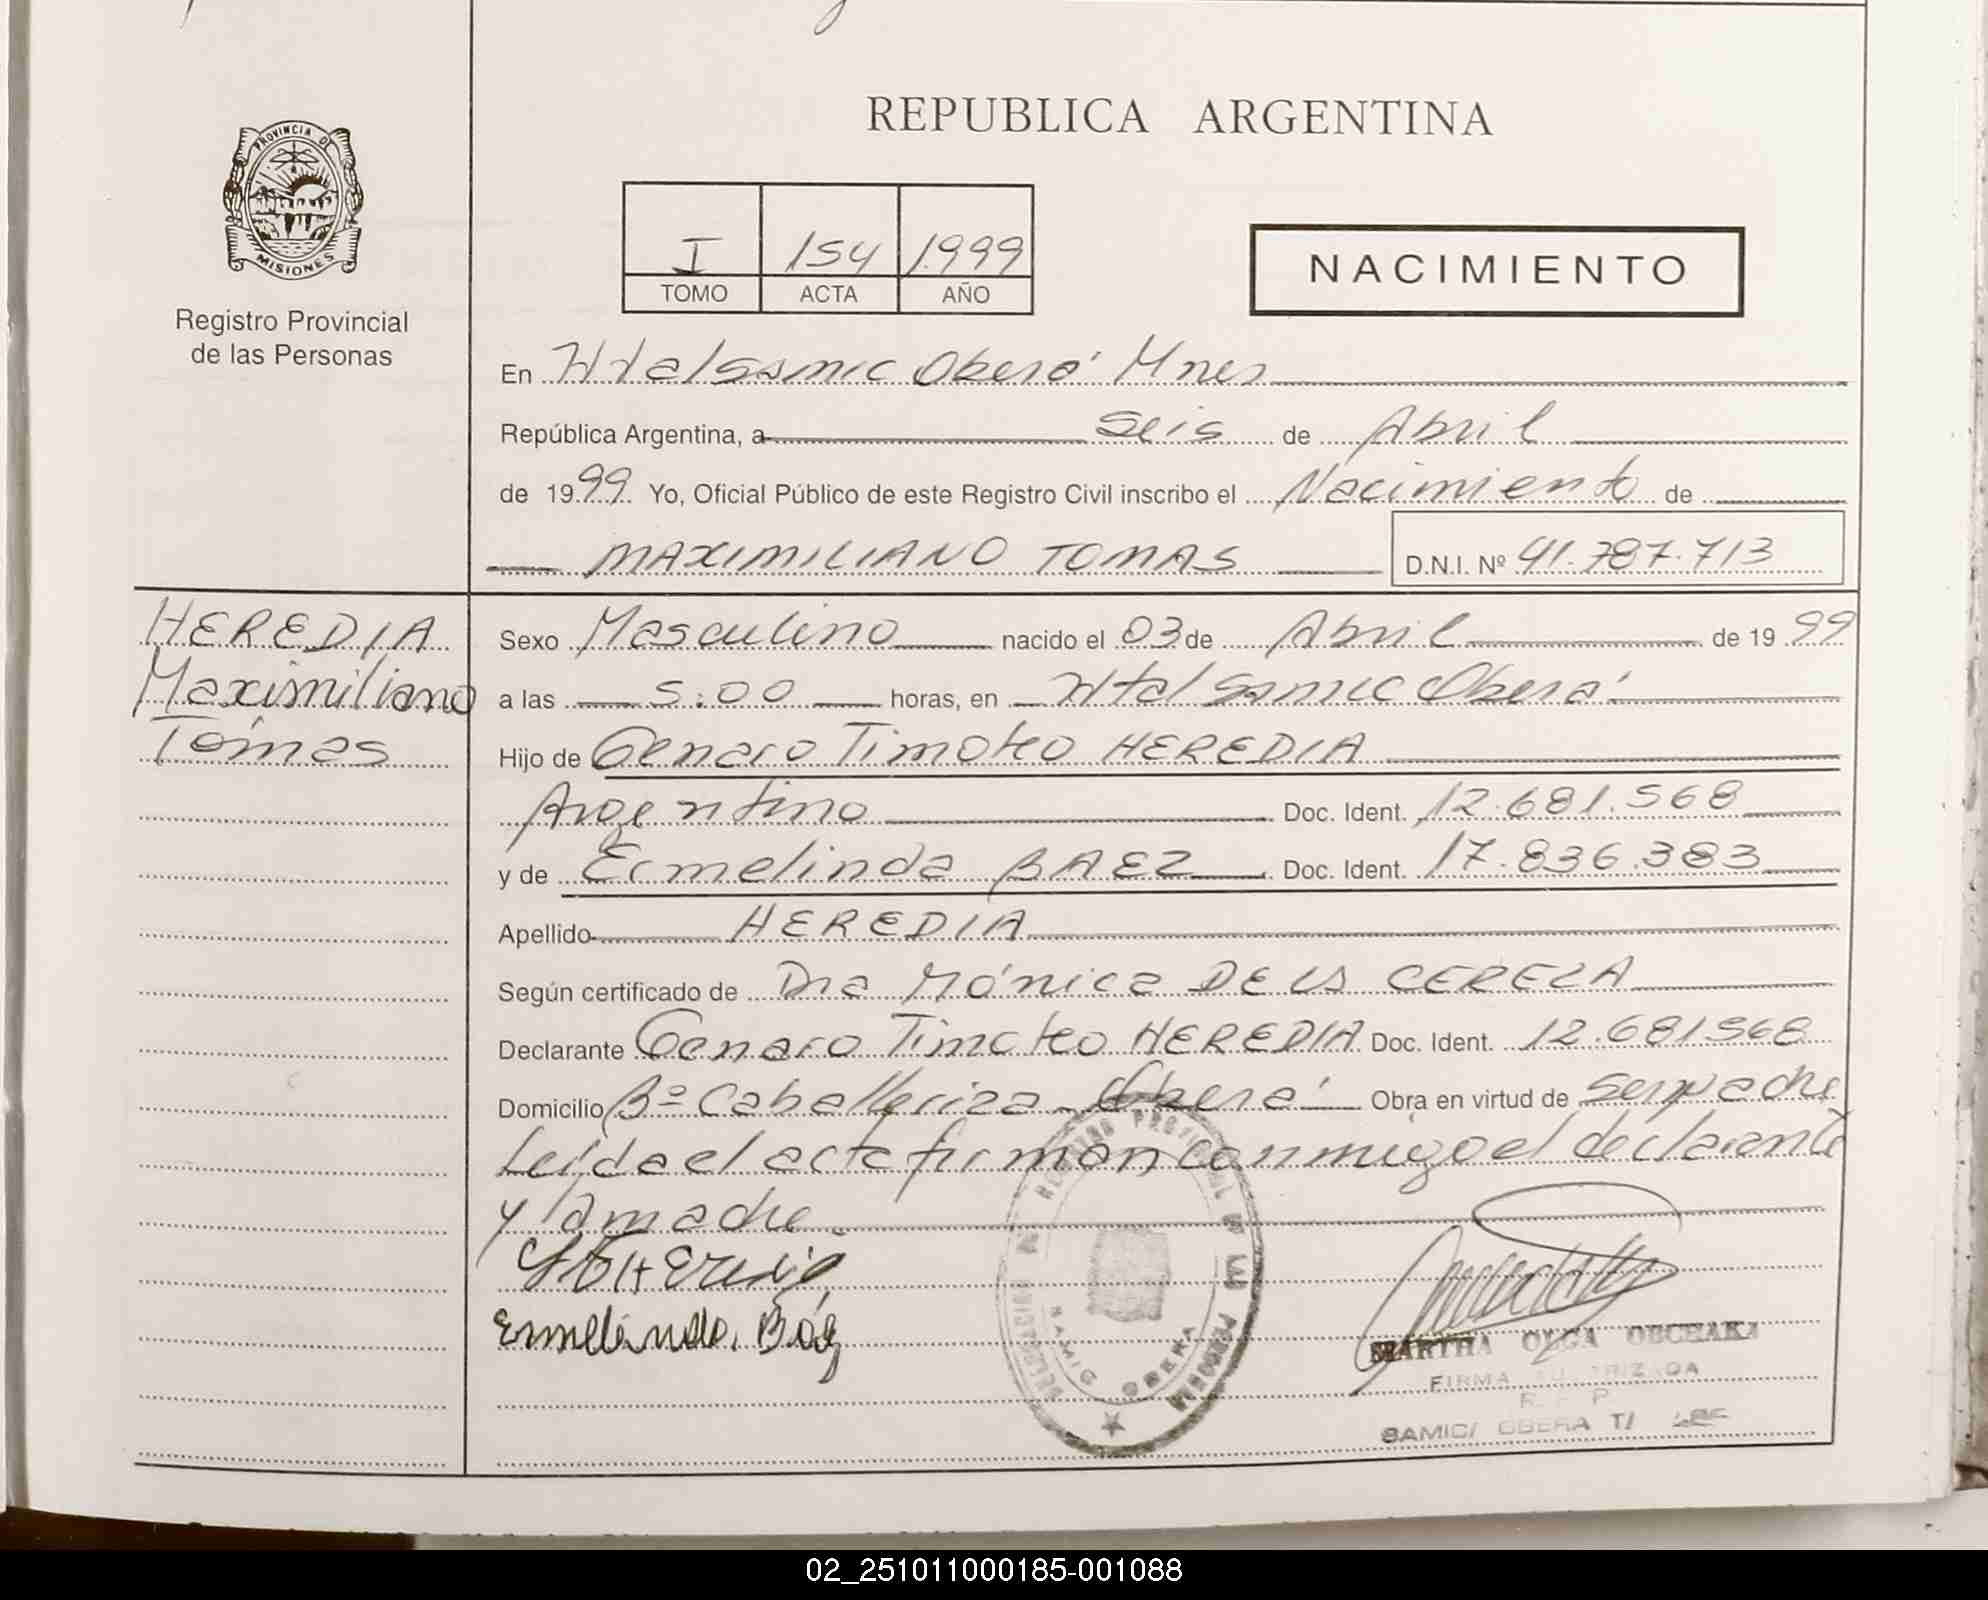 REPUBLICA ARGENTINA
PROVINCIA DE
MISIONES
Registro Provincial
de las Personas
I 154 1999
TOMO ACTA AÑO
NACIMIENTO
En Htal Samic Oberá Mnes
República Argentina, a seis de Abril
de 1999 Yo, Oficial Público de este Registro Civil inscribo el Nacimiento de
MAXIMILIANO TOMAS D.N.I. Nº 41.787.713
HEREDIA
Maximiliano
Tomas
Sexo Masculino nacido el 03 de Abril de 1999
a las 5:00 horas, en Htal Samic Oberá
Hijo de Genaro Timoteo HEREDIA
Argentino Doc. Ident. 12.681.568
y de Ermelinda BAEZ Doc. Ident. 17.836.383
Apellido HEREDIA
Según certificado de Dra Mónica DE LA CEREZA
Declarante Genaro Timoteo HEREDIA Doc. Ident. 12.681568
Domicilio Bº Caballeriza Oberá Obra en virtud de ser padre
Leída el acta firman conmigo el declarante
y la madre
Heredia
Ermelinda. Báez
REGISTRO PROVINCIAL DE LAS PERSONAS
DELEGACION
SAMIC OBERA
MARTHA OLGA OBCHAKA
FIRMA AUTORIZADA
R. P.
SAMIC/ OBERA T/
02_251011000185-001088